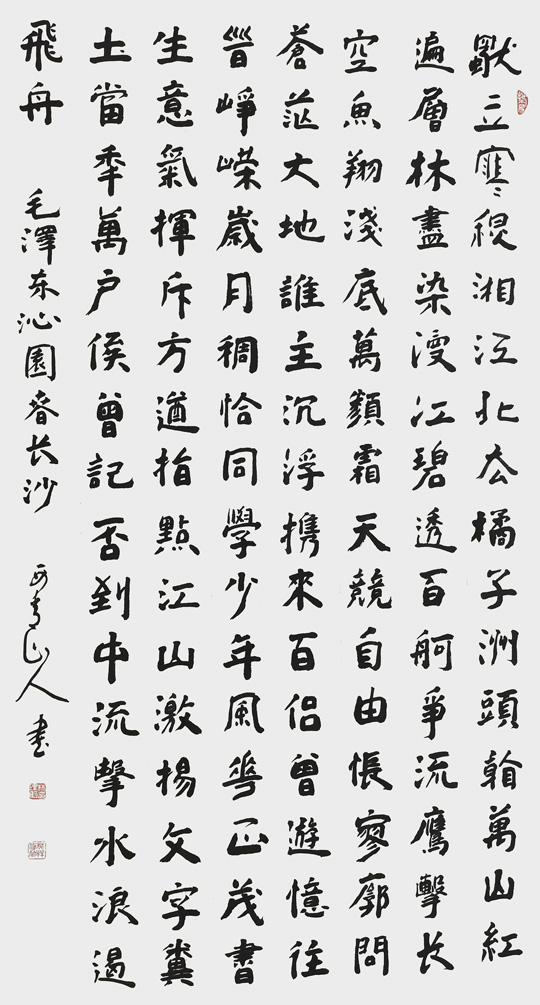 獨立寒秋湘江北去橘子洲頭看萬山紅
遍層林盡染漫江碧透百舸爭流鷹擊长
空魚翔淺底萬類霜天競自由悵寥廓問
蒼茫大地誰主沉浮携來百侶曾遊憶往
昔崢嶸歲月稠恰同學少年風華正茂書
生意氣揮斥方遒指點江山激揚文字糞
土當年萬戶侯曾記否到中流擊水浪遏
飛舟 毛澤东沁園春长沙 山人書